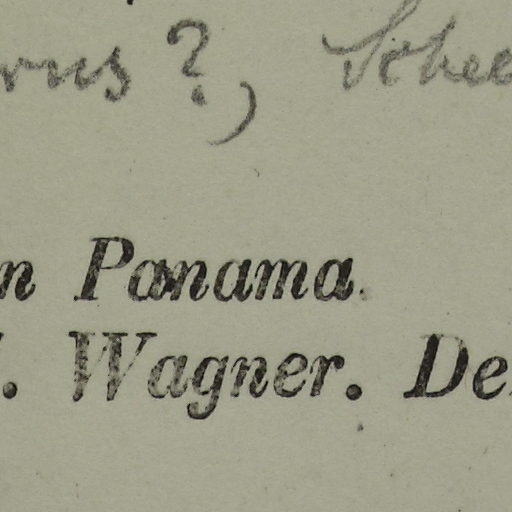 rus?, Schee
n Panama.
. Wagner. De